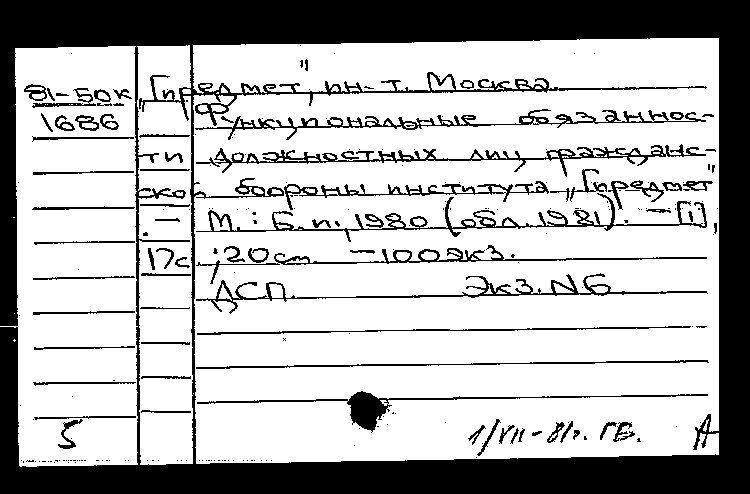 81-50к „Гипредмет", ин-т. Москва.
1686 Функциональные обязаннос-
ти должностных лиц гражданс-
ской обороны института „Гипредмет"
. — М.: Б.и., 1980 (обл. 1981). — [1],
17с.; 20 см. — 100 экз.
ДСП. Экз. N6.
5 1/VII-81г. ГБ. А